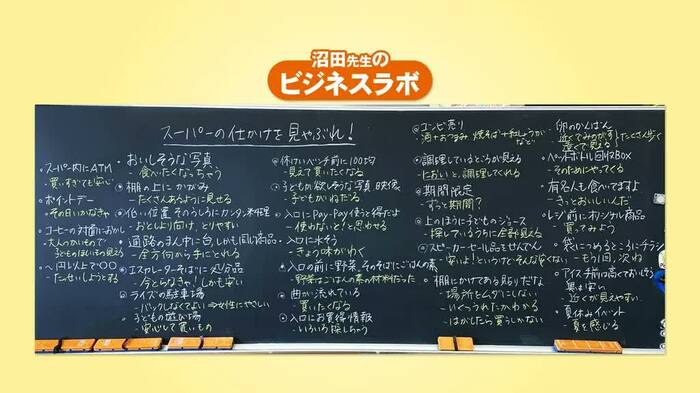 沼田先生の
ビジネスラボ
スーパーの仕かけを見やぶれ!
スーパー内にATM
買いすぎても安心
ポイントデー
その日いかなきゃ
コーヒーの対面におかし
大人のかいもので
子どものほしいもの見える
〜円以上で〇〇
たっせいしようとする
おいしそうな写真
食べたくなっちゃう
棚の上にかがみ
たくさんあるように見せる
低い位置 そのうしろにカンタン料理
おとしより向け、とりやすい
通路のまん中に台、しかも同じ商品
全方向から手にとれる
エスカレーターそばに処分品
今とらなきゃ!しかも安い
ライズの駐車場
バックしなくてよい⇒女性にやさしい
子どもの遊び場
安心して買いもの
休けいベンチ前に100均
見えて買いたくなる
子どもが欲しそうな写真 映像
子どもがねだる
入口にPay-Pay使うと得だよ
使わないと!と思わせる
入口に水そう
きょう味がわく
入口の前に野菜、そのそばにごはんの素
野菜はごはんの素の材料だった
曲が流れている
買いたくなる
入口にお買得情報
いろいろ探しちゃう
コンビ売り
酒+おつまみ 焼そば+紅しょうが
など
調理しているところが見える
においと、調理してくれる
期間限定
ずっと期間?
上のほうに子どものジュース
探しているうちに全部見える
スピーカーセール品をせんでん
安いよ!というけどそんな安くない
棚にかけてある見切りだな
場所をムダにしない
いくつうれたかわかる
はがしたら買うしかない
卵のかんばん
近くでみのがす
遠くで見る!
たくさん歩く
ペットボトル回収BOX
そのためにやってくる
有名人も食べてますよ
きっとおいしいんだ
レジ前にオリジナル商品
買ってみよう
袋につめるところにチラシ
もう1回、次ね
アイス手前は高くておいしそう
奥は安い
近くが見えやすい
夏休みイベント
夏を感じる